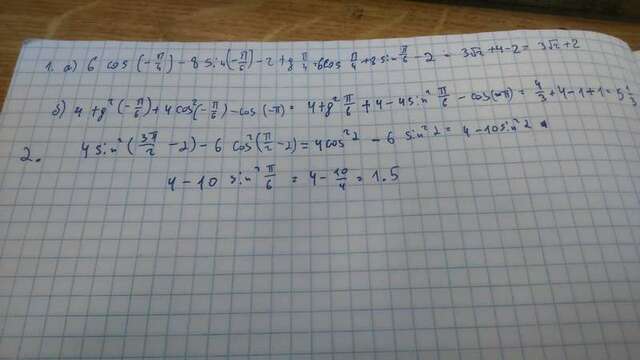 1. а) 6 cos (-π/4) - 8 sin(-π/6) - 2 tg π/4 = 6cos π/4 + 8 sin π/6 - 2 = 3√2 + 4 - 2 = 3√2 + 2
б) 4 tg² (-π/6) + 4cos²(-π/6) - cos (-π) = 4 tg² π/6 + 4 - 4sin² π/6 - cos(-π) = 4/3 + 4 - 1 + 1 = 5 1/3
2. 4 sin² (3π/2 - 2) - 6 cos² (π/2 - 2) = 4cos² 2 - 6 sin² 2 = 4 - 10sin² 2
4 - 10 sin² π/6 = 4 - 10/4 = 1.5